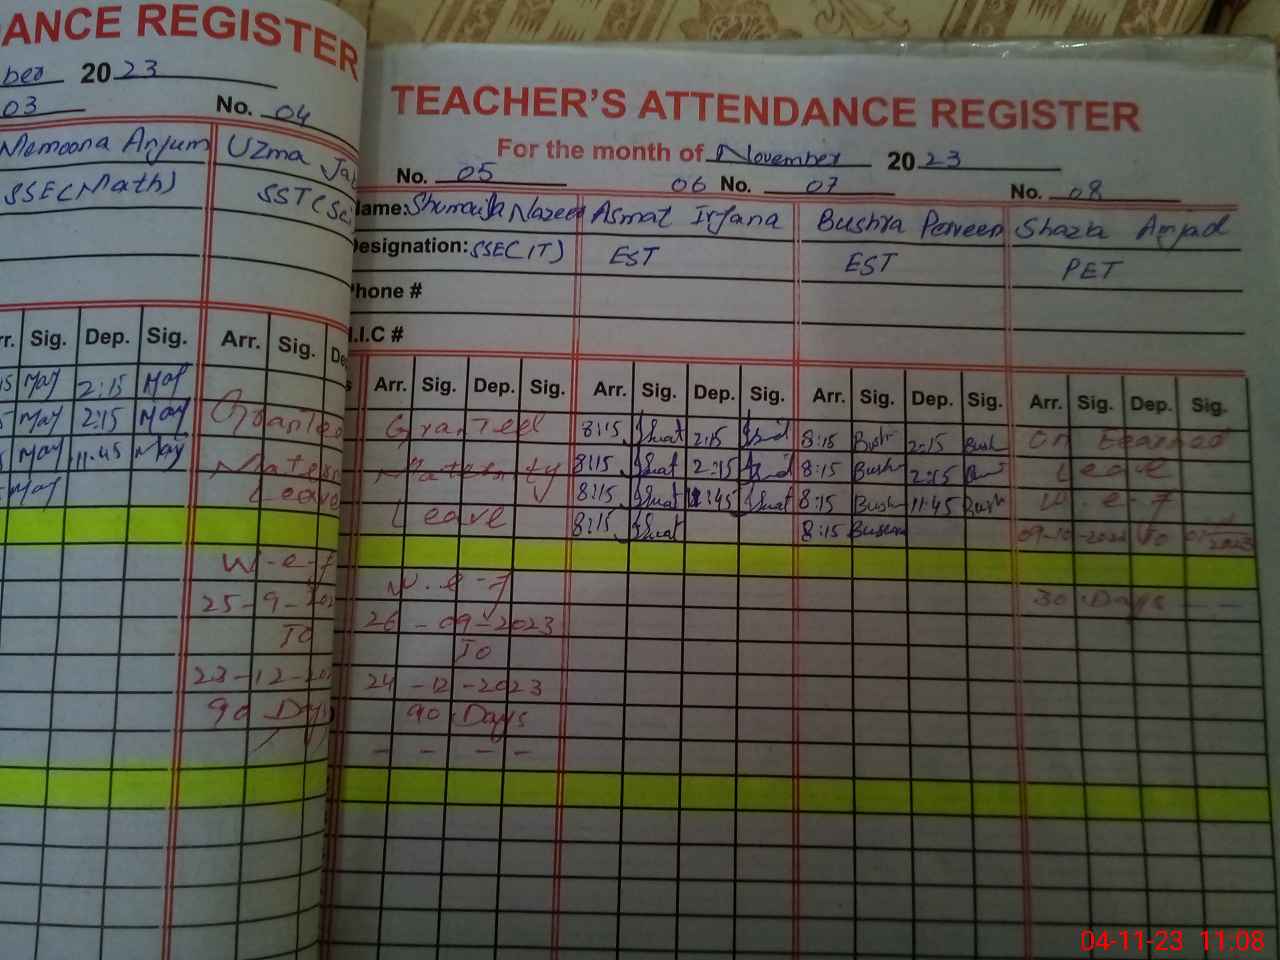 ANCE REGISTER
ber 20 23
03 No. 04
Memoona Anjum Uzma
SSE(Math) SST(Sc
rr. Sig. Dep. Sig. Arr. Sig. De
15 May 2:15 May
May 2:15 May Granted
May 11:45 May Matern
May Leave
W.e.f
25-9-202
TO
23-12-202
90 Days
TEACHER'S ATTENDANCE REGISTER
For the month of November 20 23
No. 05 06 No. 07 No. 08
Name: Shumaila Nazeer Asmat Irfana Bushra Parveen Shazia Amjad
Designation: SSE(IT) EST EST PET
Phone #
N.I.C #
Arr. Sig. Dep. Sig. Arr. Sig. Dep. Sig. Arr. Sig. Dep. Sig. Arr. Sig. Dep. Sig.
Granted 8:15 2:15 8:15 Bush 2:15 Bush On Earned
Maternity 8:15 2:15 8:15 Bush 2:15 Leave
8:15 11:45 8:15 Bush 11:45 Bush W.e.f
Leave 8:15 8:15 09-10-2023 To
W.e.f 30 Days - -
26-09-2023
To
24-12-2023
90 Days
- - - -
04-11-23 11:08